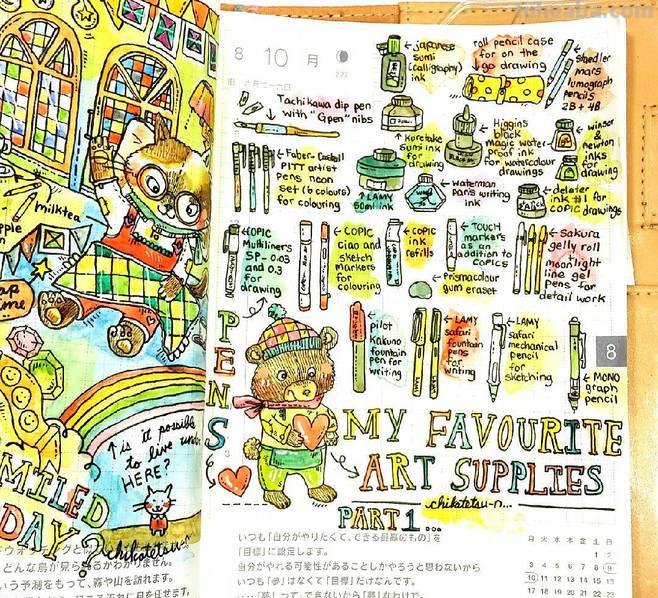 milktea
is it possible
to live
HERE?
MILED
DAY?
chikatetsu-n
どんな鳥が見られるかわかりません。
8
10月
Japanese
sumi
(calligraphy)
ink
roll pencil case
for on the
go drawing
mars
lumograph
pencils
2B + 4B
Tachikawa dip pen
with "Gpen" nibs
Kuretake
sumi ink for
drawing
Higgins
black
magic water-
proof ink
for watercolour
drawings
winsor
&
newton
inks
for
drawing
Faber-Castell
PITT artist
pens neon
set (6 colours)
for colouring
LAMY
50ml ink
Waterman
paris writing
ink
deleter
ink #1 for
COPIC drawings
COPIC
Multiliners
SP- 0.03
and 0.3
for
drawing
COPIC
ciao and
sketch
markers
for
colouring
COPIC
ink
refills
TOUCH
markers
as an
addition to
COPICs
Prismacolour
gum eraser
Sakura
gelly roll
moonlight
line gel
pens for
detail work
pilot
Kakuno
fountain
pen for
writing
LAMY
safari
fountain
pens
for
writing
LAMY
safari
mechanical
pencil
for
sketching
MONO
graph
pencil
8
PENS
MY FAVOURITE
ART SUPPLIES
chikatetsu-n...
PART 1...
いつも「自分がやりたくて、できる最高のもの」を
「目標」に設定します。
自分がやれる可能性があることしかやろうと思わないから
いつも「夢」はなくて「目標」だけなんです。
月 火 水 木 金 土 日
1 2
3 4 5 6 7 8 9
10 11 12 13 14 15 16